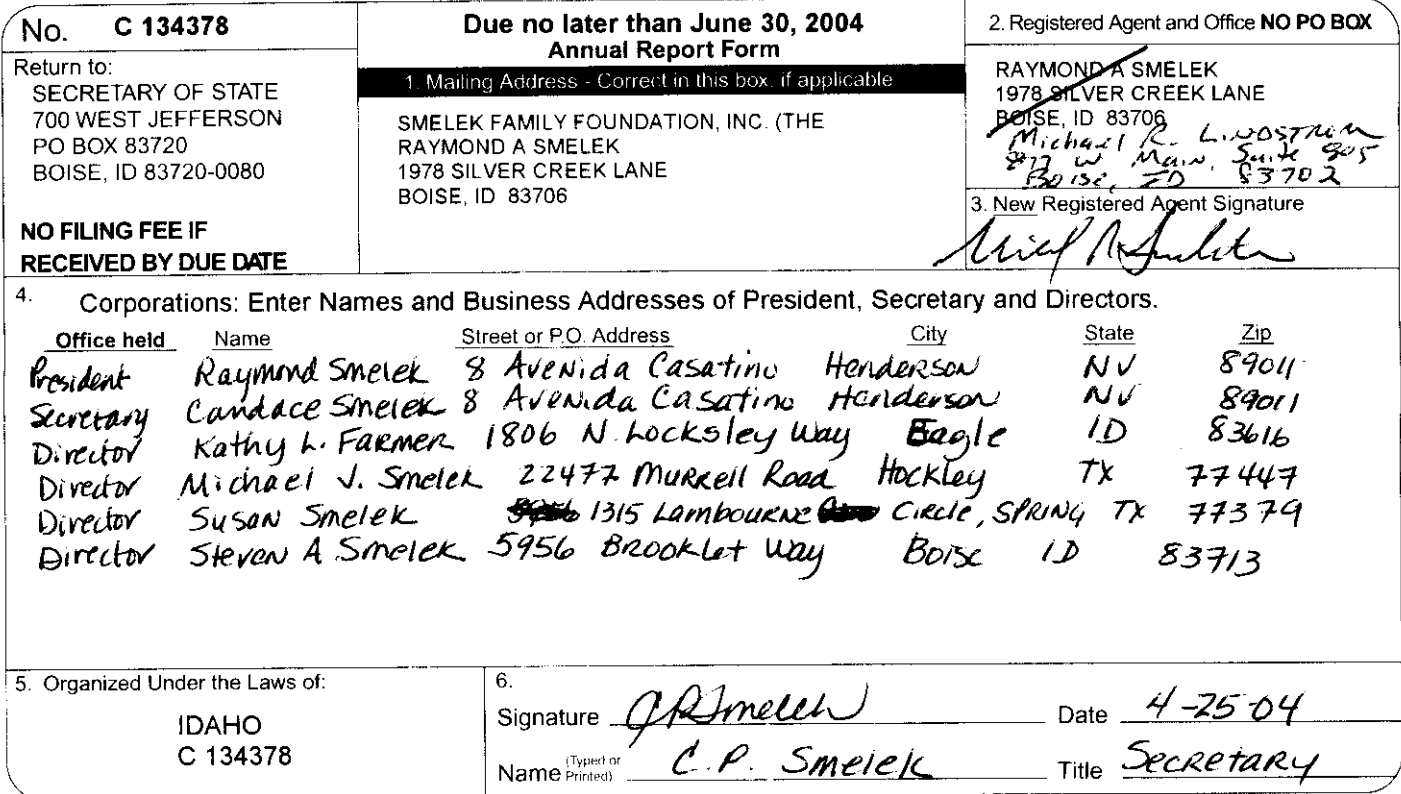 No. C 134378
Return to:
SECRETARY OF STATE
700 WEST JEFFERSON
PO BOX 83720
BOISE, ID 83720-0080
NO FILING FEE IF
RECEIVED BY DUE DATE
Due no later than June 30, 2004
Annual Report Form
1. Mailing Address - Correct in this box, if applicable
SMELEK FAMILY FOUNDATION, INC. (THE
RAYMOND A SMELEK
1978 SILVER CREEK LANE
BOISE, ID 83706
2. Registered Agent and Office NO PO BOX
RAYMOND A SMELEK
1978 SILVER CREEK LANE
BOISE, ID 83706
Michael R. Lindstrom
877 W Main, Suite 905
Boise, ID 83702
3. New Registered Agent Signature
4. Corporations: Enter Names and Business Addresses of President, Secretary and Directors.
Office held Name Street or P.O. Address City State Zip
President Raymond Smelek 8 Avenida Casatino Henderson NV 89011
Secretary Candace Smelek 8 Avenida Casatino Henderson NV 89011
Director Kathy L. Farmer 1806 N. Locksley Way Eagle ID 83616
Director Michael J. Smelek 22477 Murrell Road Hockley TX 77447
Director Susan Smelek 1315 Lambourne Circle, SPRING TX 77379
Director Steven A Smelek 5956 Brooklet Way Boise ID 83713
5. Organized Under the Laws of:
IDAHO
C 134378
6.
Signature CPSmelek Date 4-25-04
Name (Typed or Printed) C.P. Smelek Title Secretary